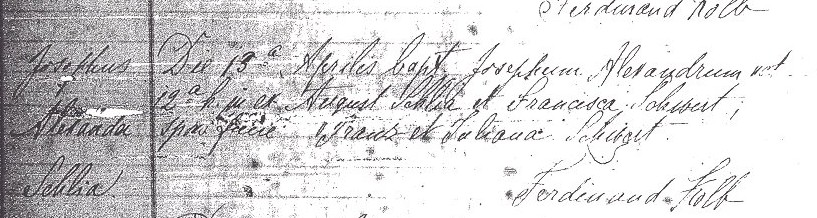 Ferdinand Kolb
Josephus Die 13ª Aprilis bapt Josephum Alexandrum nat
12ª h. m ex August Schlia et Francisca Schwert,
Alexander spon fuere Franz et Juliana Schwert.
Schlia
Ferdinand Kolb